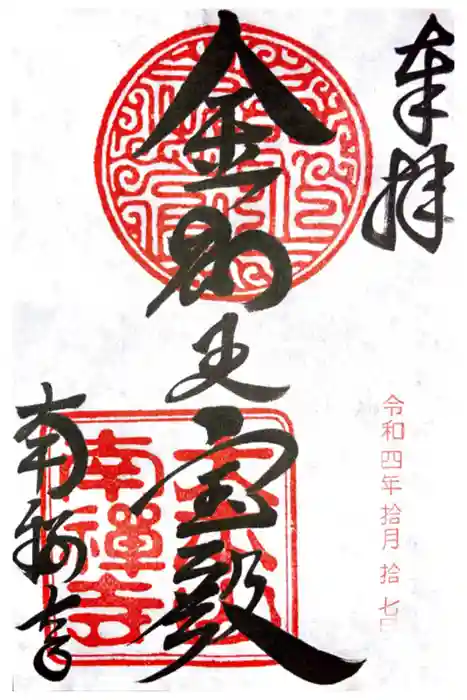 奉拝
令和四年拾月拾七日
金剛王宝殿
南禅寺
南禪寺